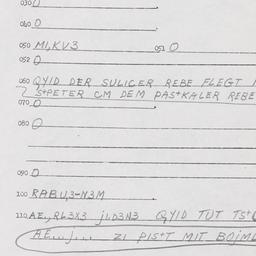 030 0
040 0
050 MLKV3 051 0
052 0
060 QYID DER SULICER REBE FLEGT
S+PETER CM DEM PAS+KALER REBE
070 0
080 0
090 0
100 RABU,3-N3M
110 AE., RL3X3 j1.D3N3 QYID TUT
AE...j... ZI PIS+T MIT BOJML